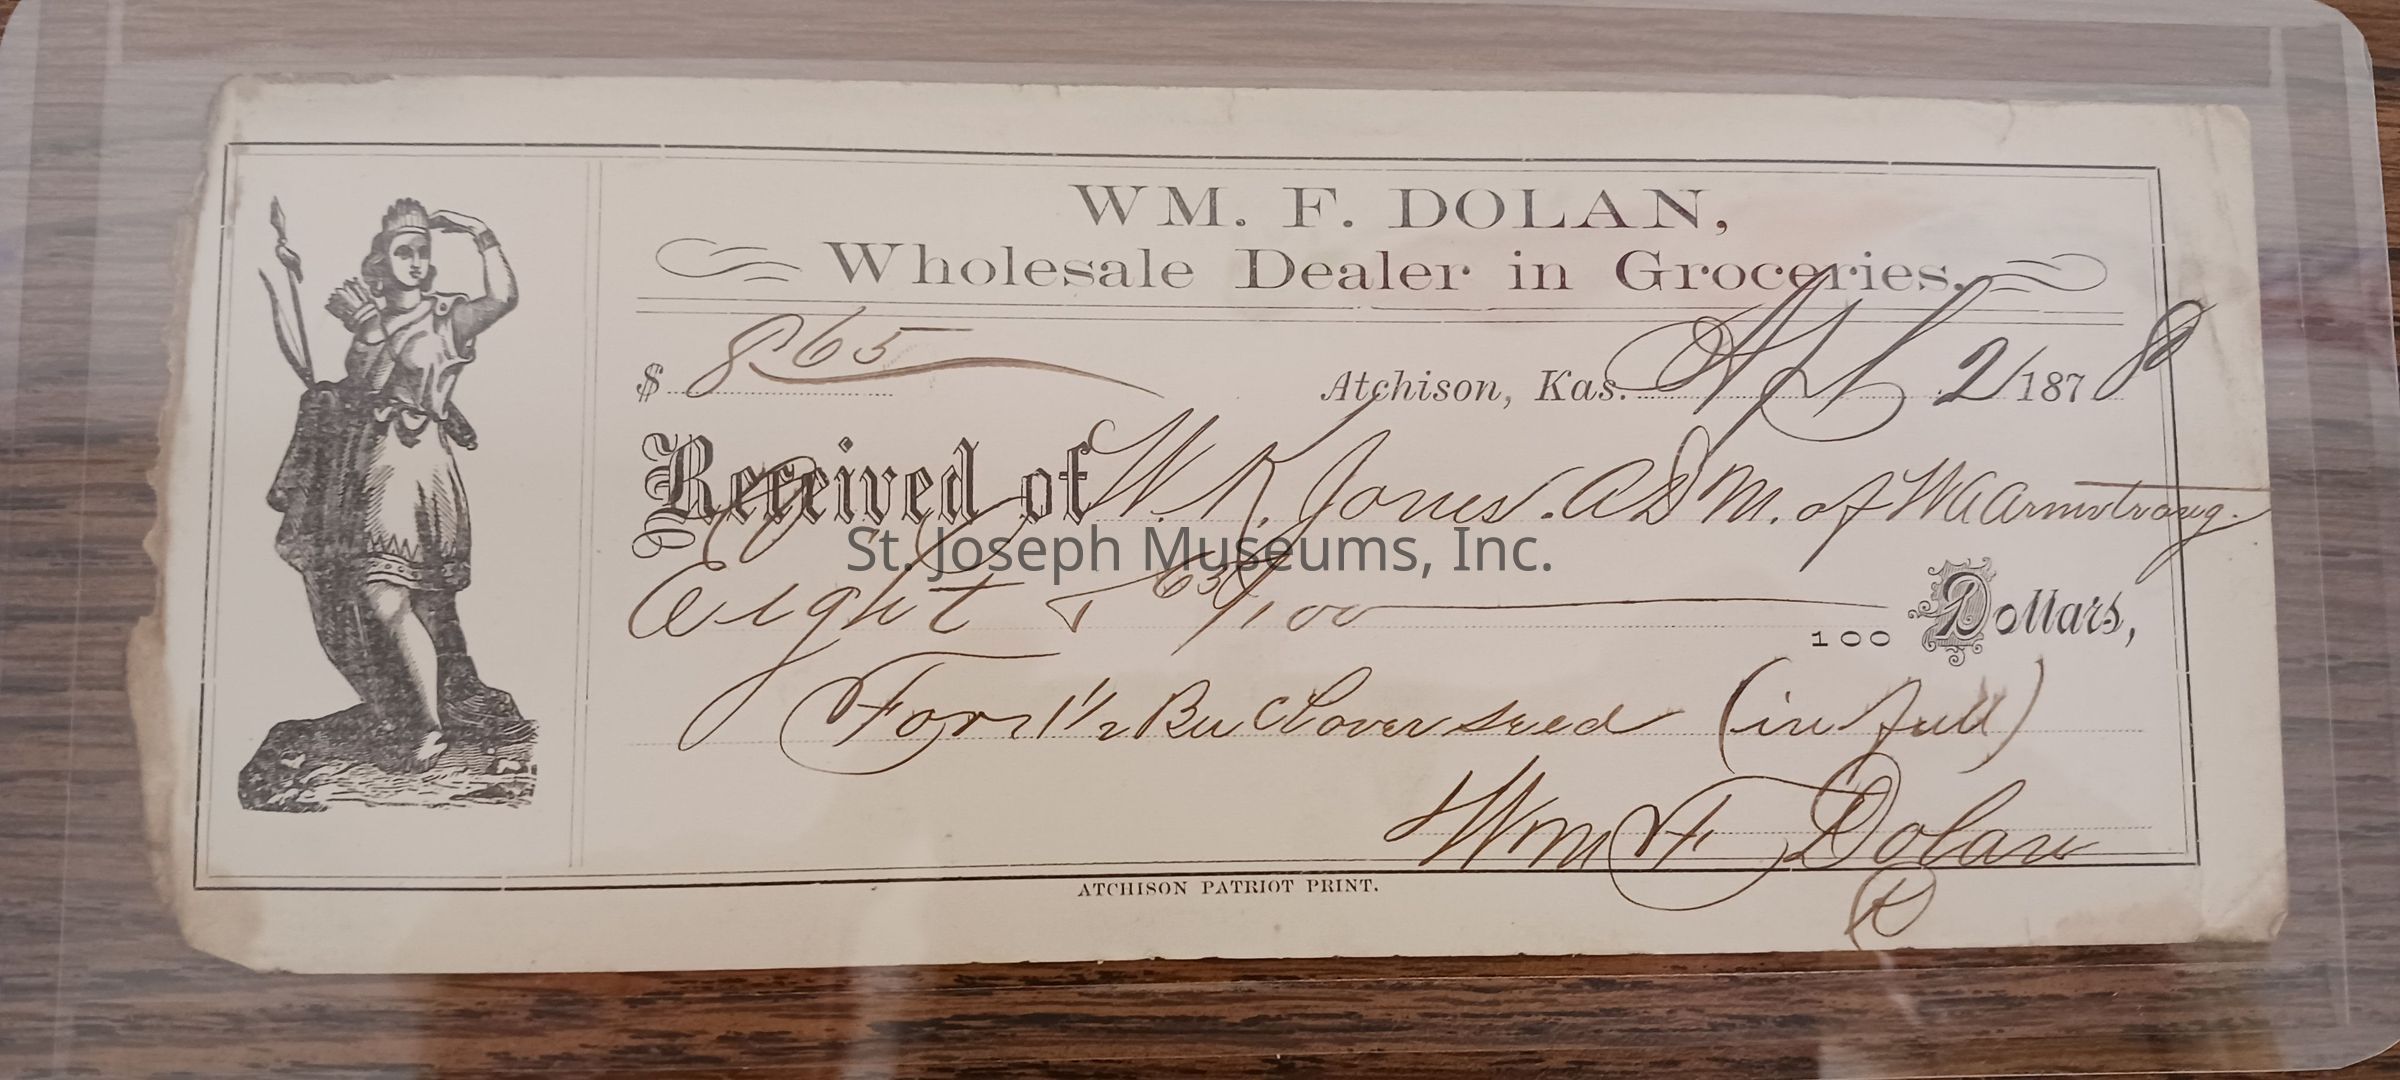 WM. F. DOLAN,
Wholesale Dealer in Groceries.
$ 8 65 Atchison, Kas. Apl 2/1878
Received of W. R. Jones. ADM. of W A Armstrong.
St. Joseph Museums, Inc.
Eight & 65/100 100 Dollars,
For 1 1/2 Bu Clover seed (in full)
Wm F Dolan
ATCHISON PATRIOT PRINT.